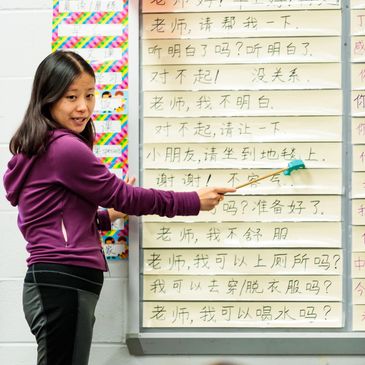 老师,请帮我一下.
听明白了吗?听明白了.
对不起! 没关系.
老师,我不明白.
对不起,请让一下
小朋友,请坐到地毯上.
谢谢! 不客气.
吗?准备好了.
老师,我不舒服
老师,我可以上厕所吗?
我可以去穿/脱衣服吗?
老师,我可以喝水吗?